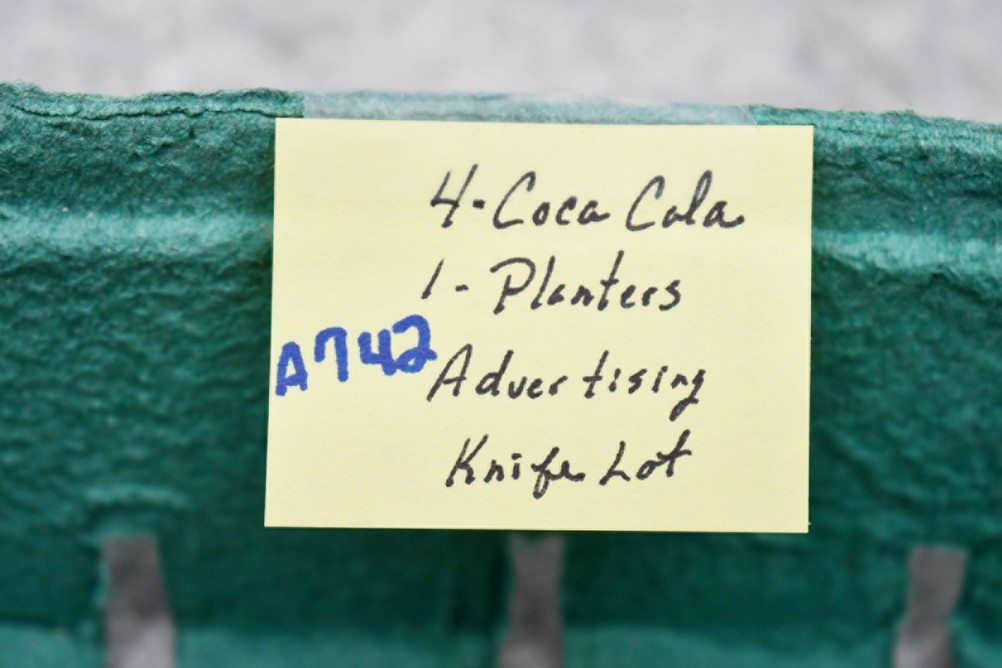 4-Coca Cola
1-Planters
A742
Advertising
Knife Lot